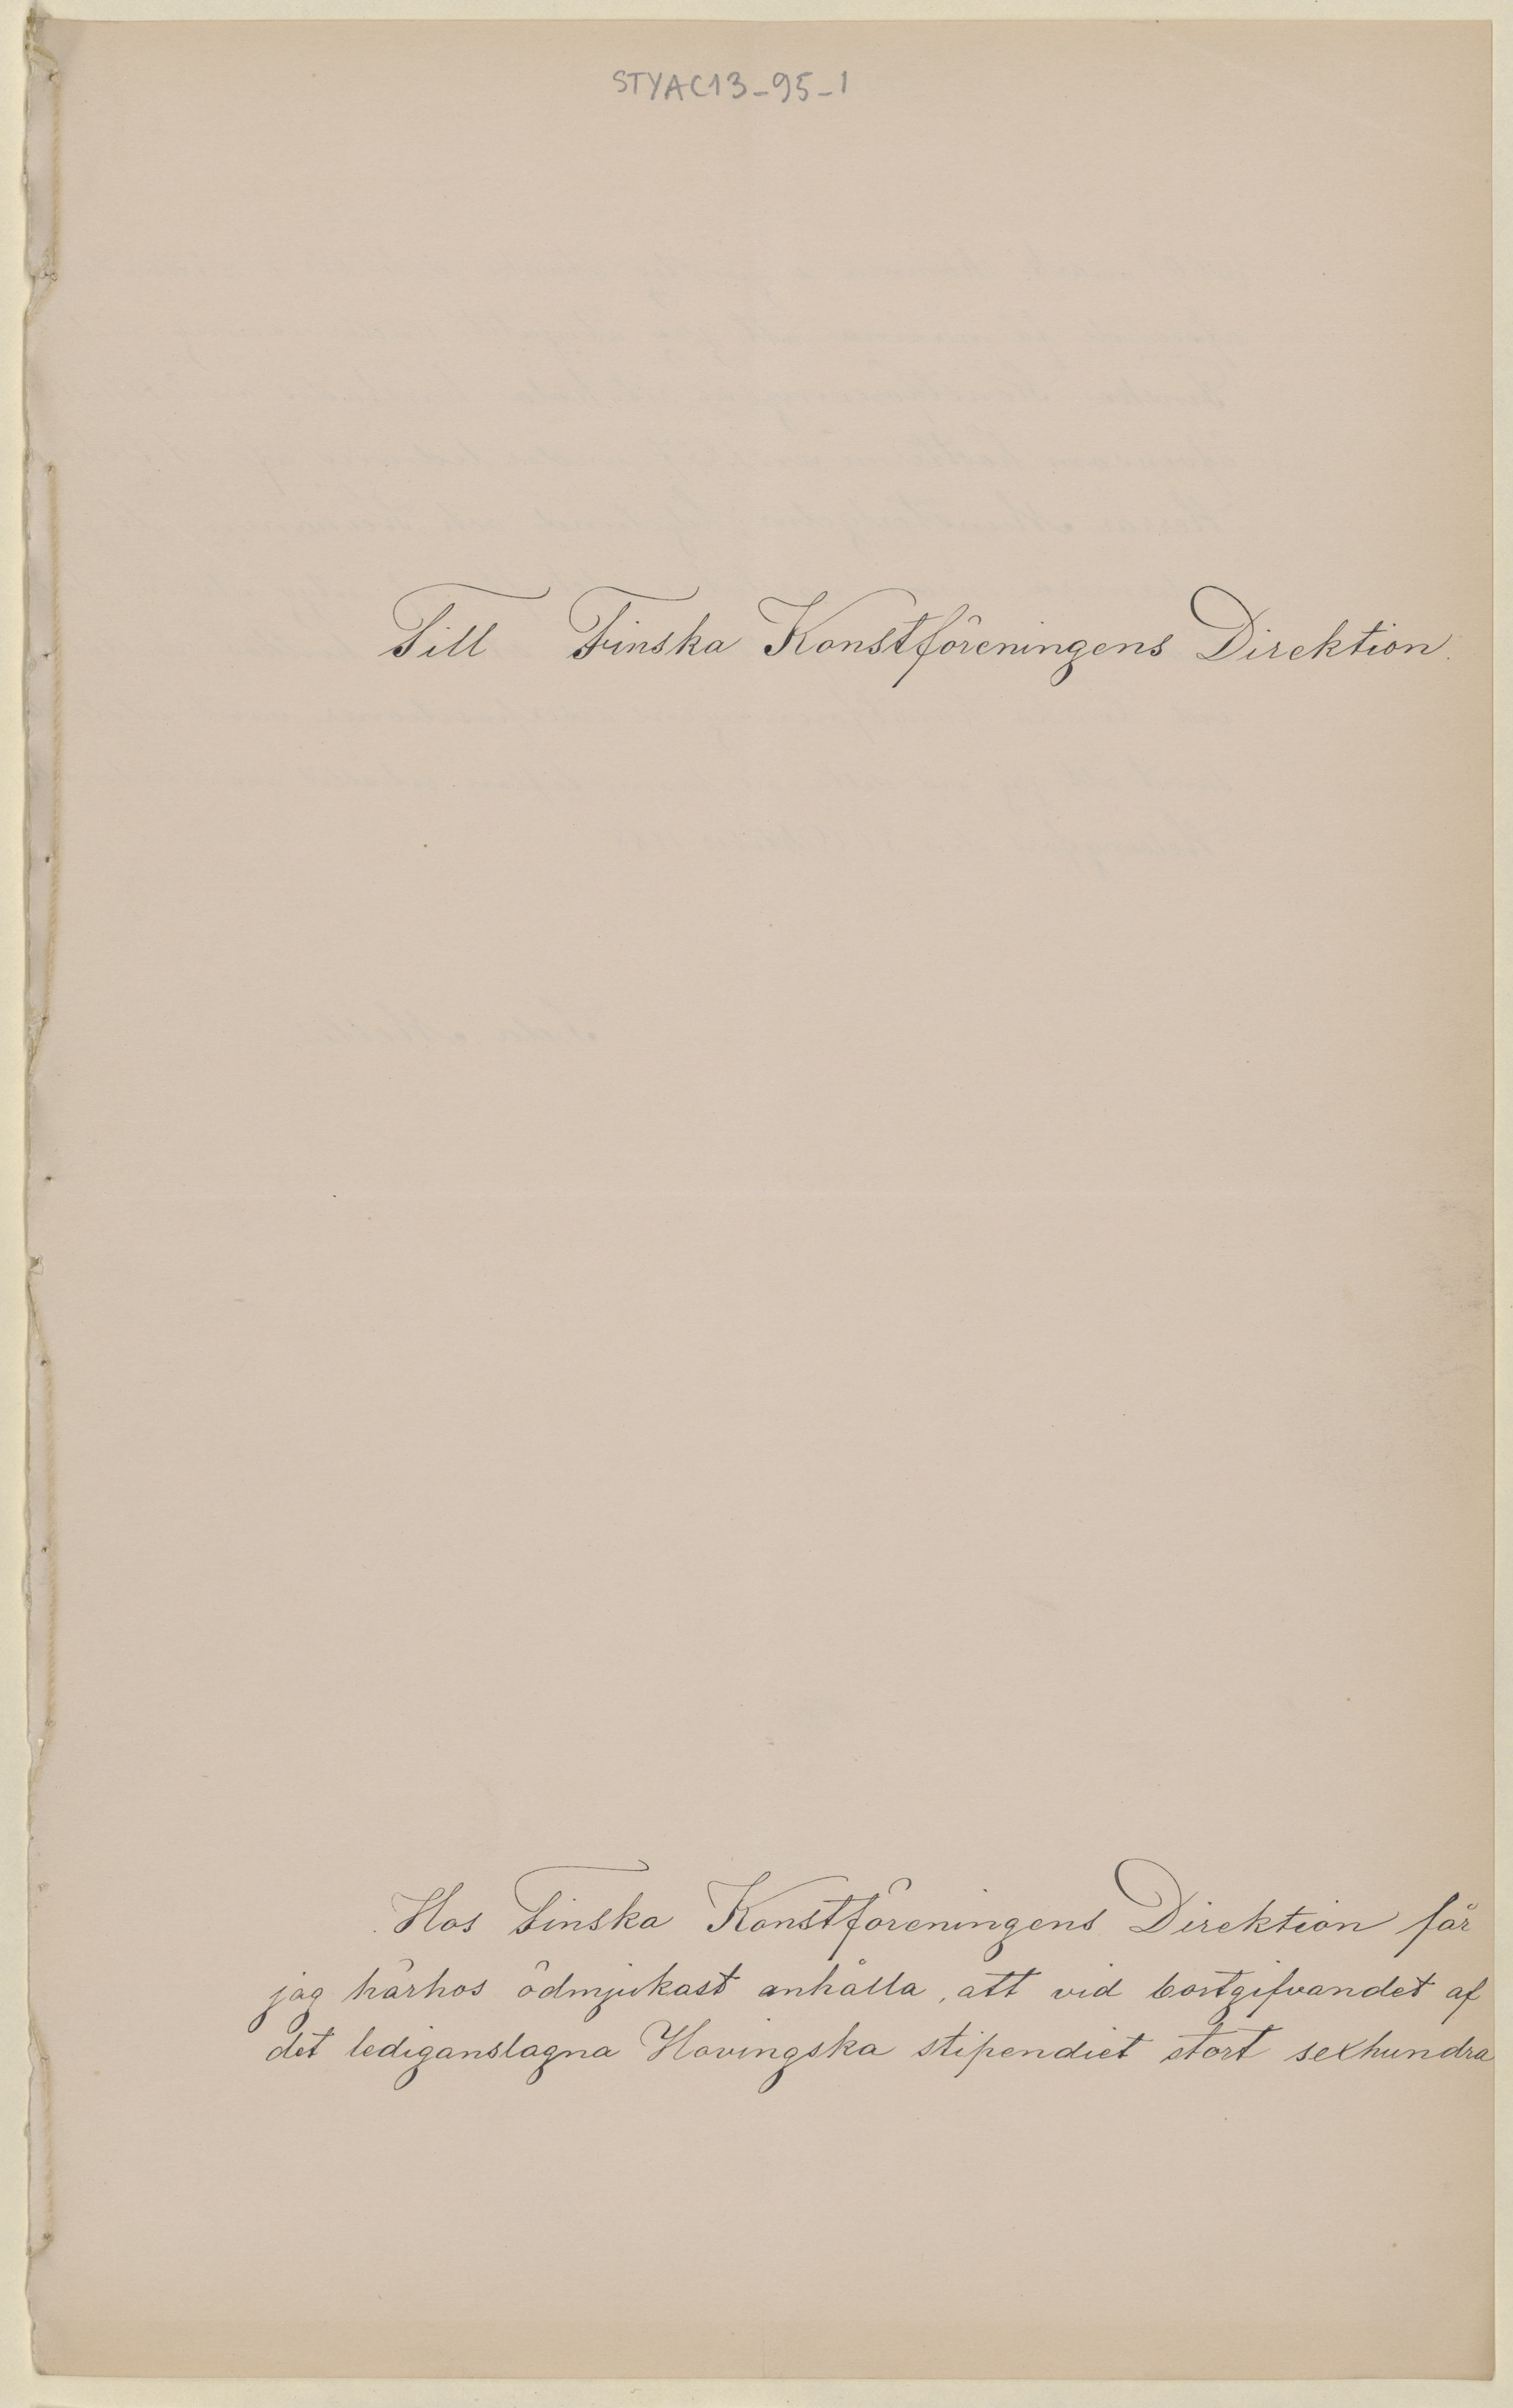 STYAC13-95-1
Till Finska Konstföreningens Direktion.
Hos Finska Konstföreningens Direktion får
jag härhos ödmjukast anhålla, att vid bortgifvandet af
det lediganslagna Hovingska stipendiet stort sexhundra